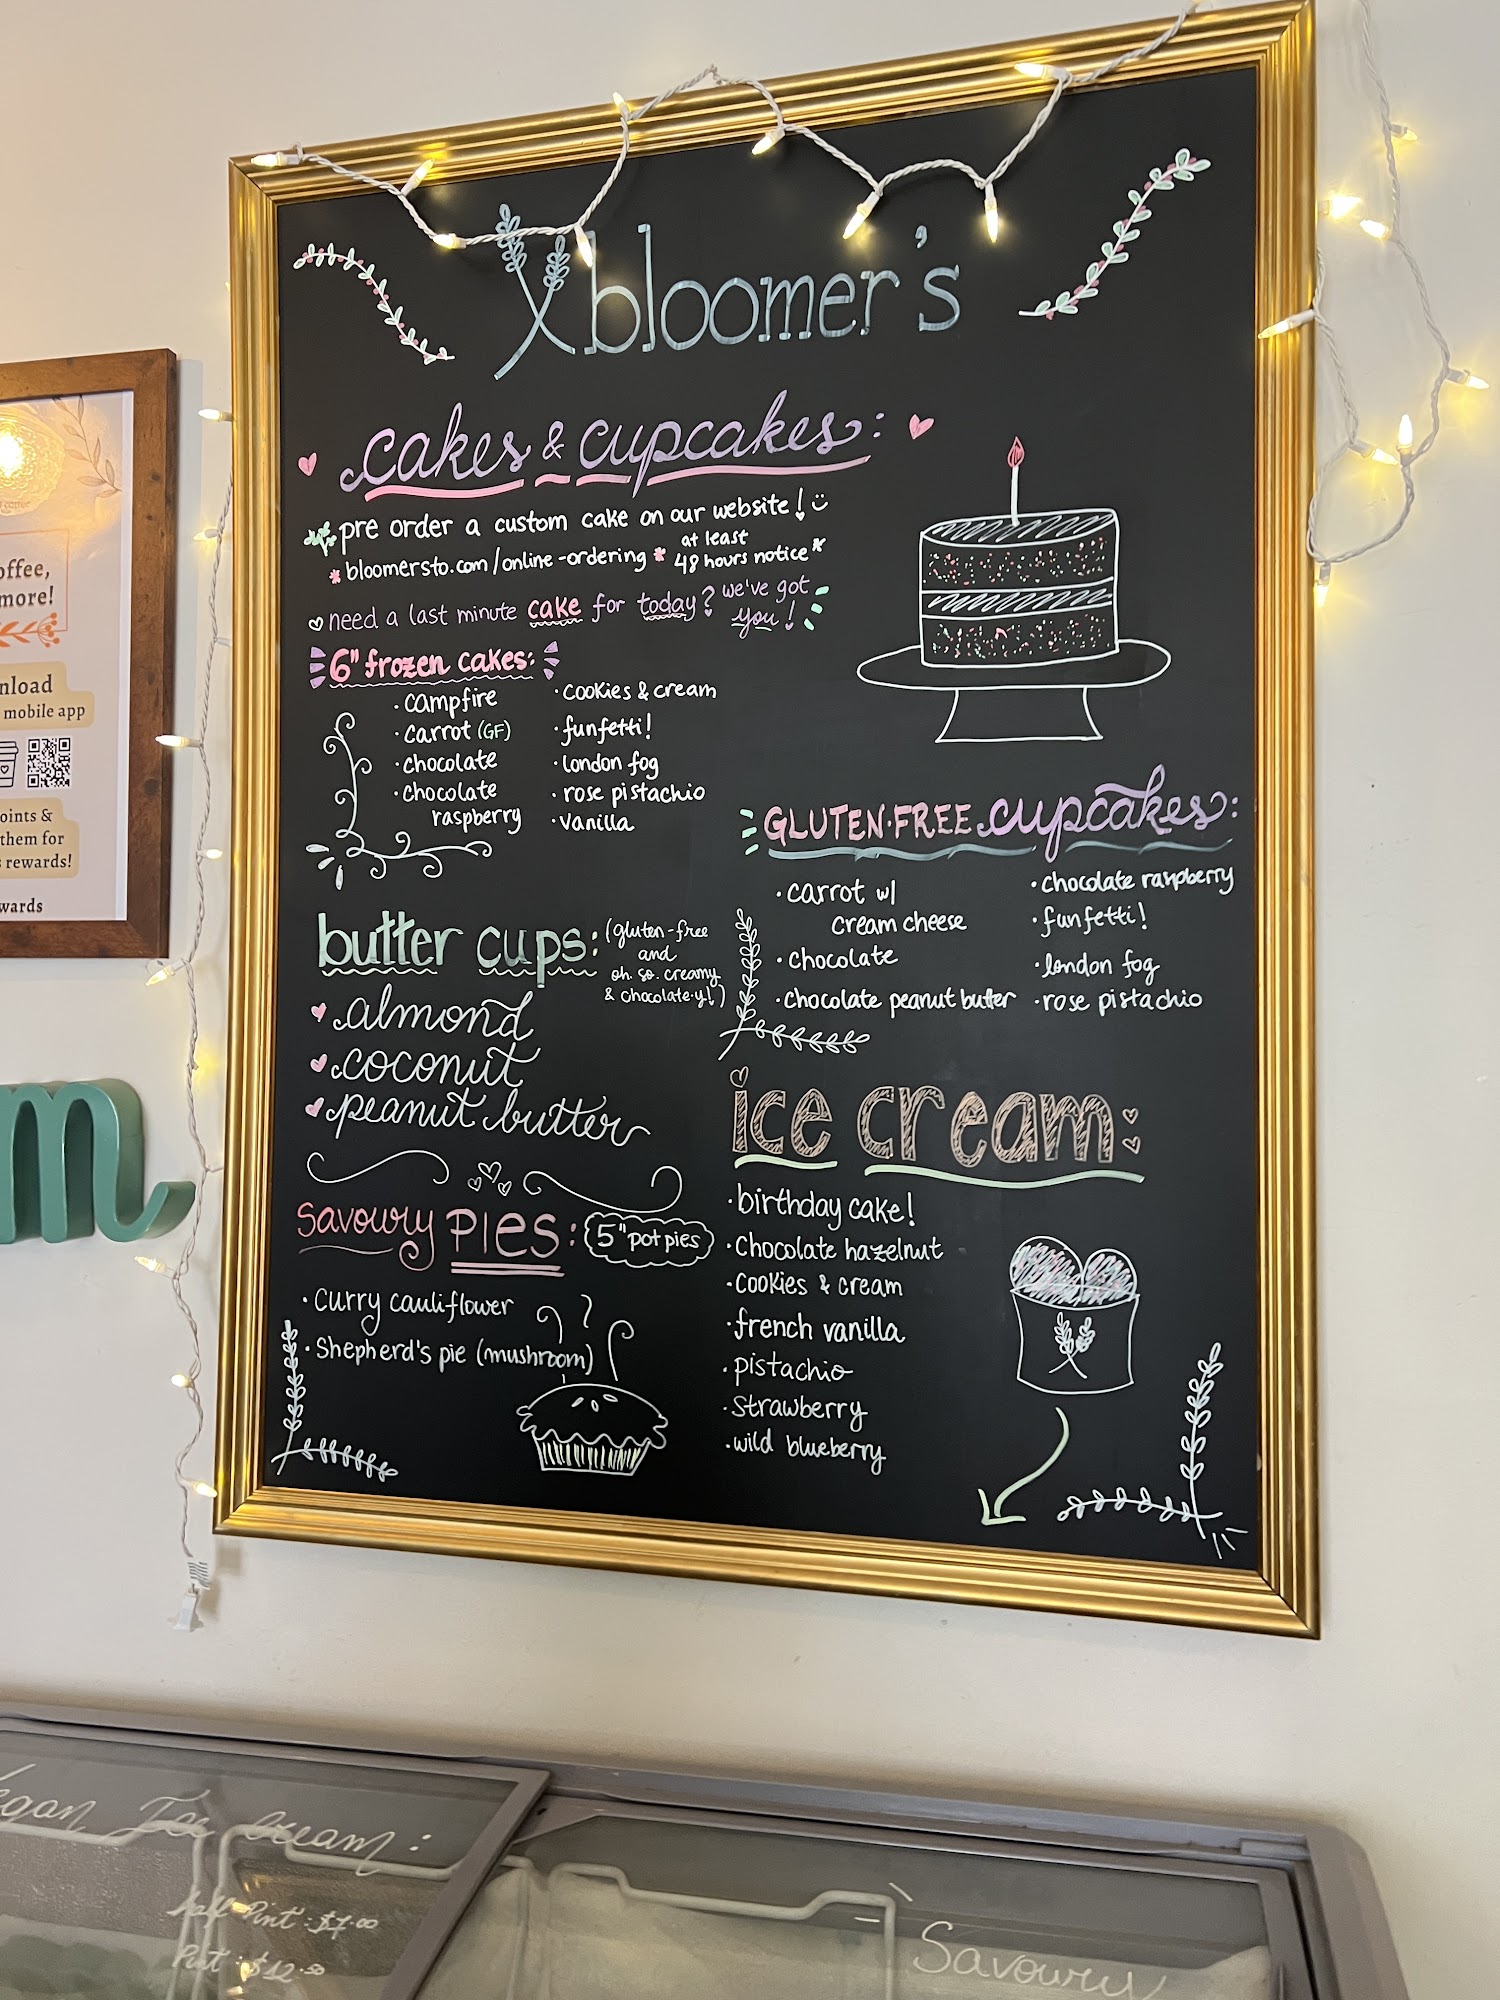 bloomer's
cakes & cupcakes:
pre order a custom cake on our website!
bloomersto.com/online-ordering * at least
48 hours notice*
need a last minute cake for today? we've got
you!
6" frozen cakes:
· campfire
· carrot (GF)
· chocolate
· chocolate
raspberry
· cookies & cream
· funfetti!
· london fog
· rose pistachio
· vanilla
GLUTEN·FREE cupcakes:
· carrot w/
cream cheese
· chocolate
· chocolate peanut butter
· chocolate raspberry
· funfetti!
· london fog
· rose pistachio
butter cups: (gluten-free
and
oh. so. creamy
& chocolate-y!)
almond
coconut
peanut butter
savoury PIES: 5" pot pies
· Curry cauliflower
· Shepherd's pie (mushroom)
ice cream:
· birthday cake!
· Chocolate hazelnut
· cookies & cream
· french vanilla
· pistachio
· strawberry
· wild blueberry
offee,
more!
nload
mobile app
oints &
them for
s rewards!
wards
m
egan Ice Cream:
Half Pint: $7.00
Pint: $12.50
Savoury